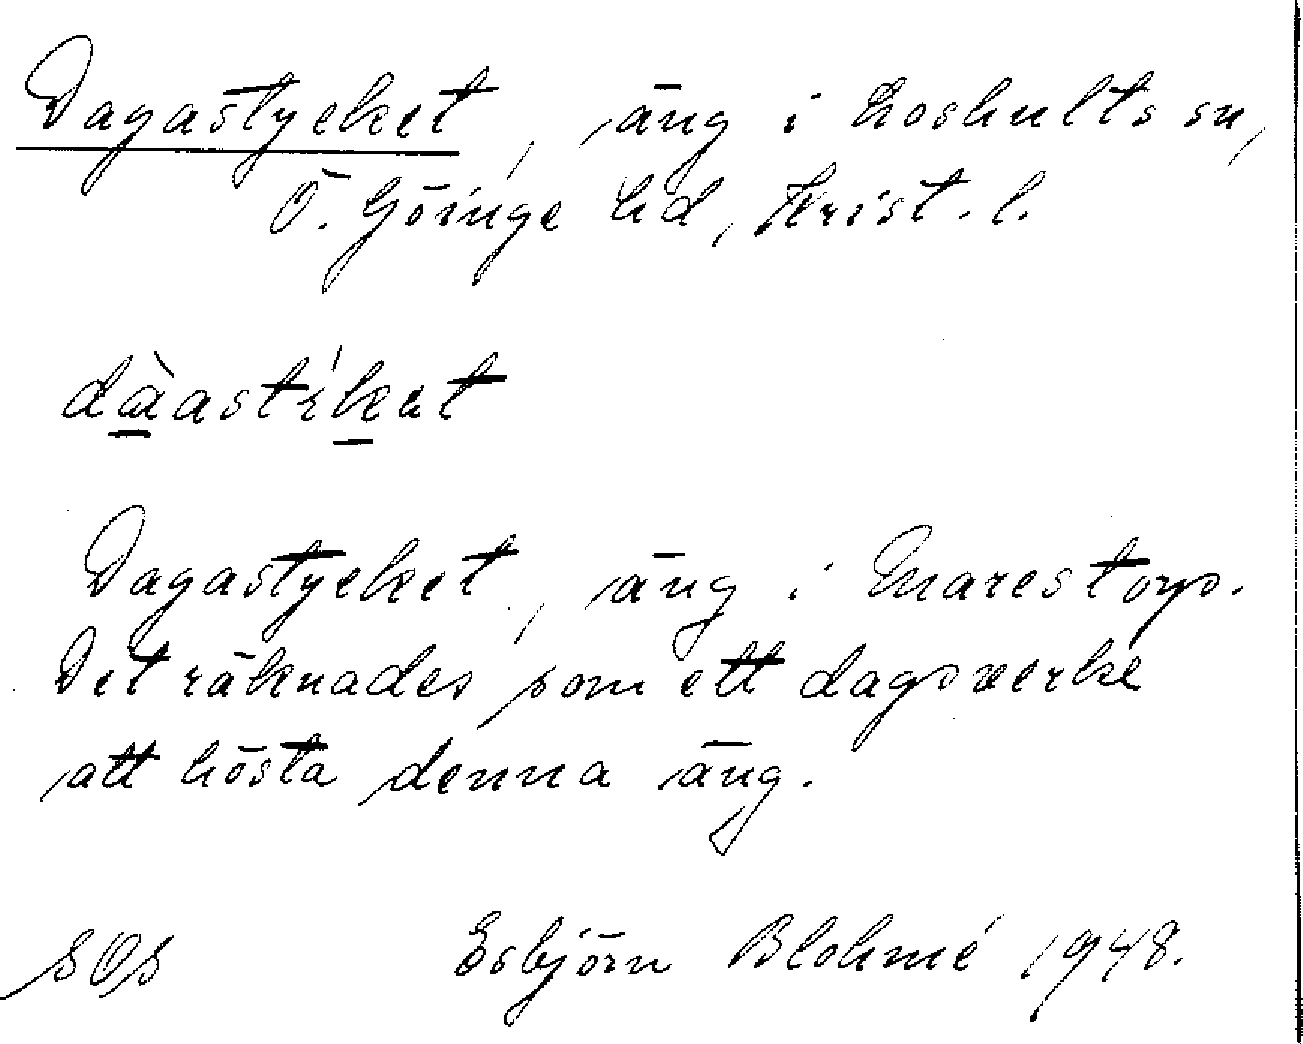 Dagastycket, äng i Loshults sn,
Ö. Göinge hd, Krist. l.
dàastíkat
Dagastycket, äng i Marestorp.
Det räknades som ett dagsverke
att hösta denna äng.
SOS Esbjörn Blohmé 1948.